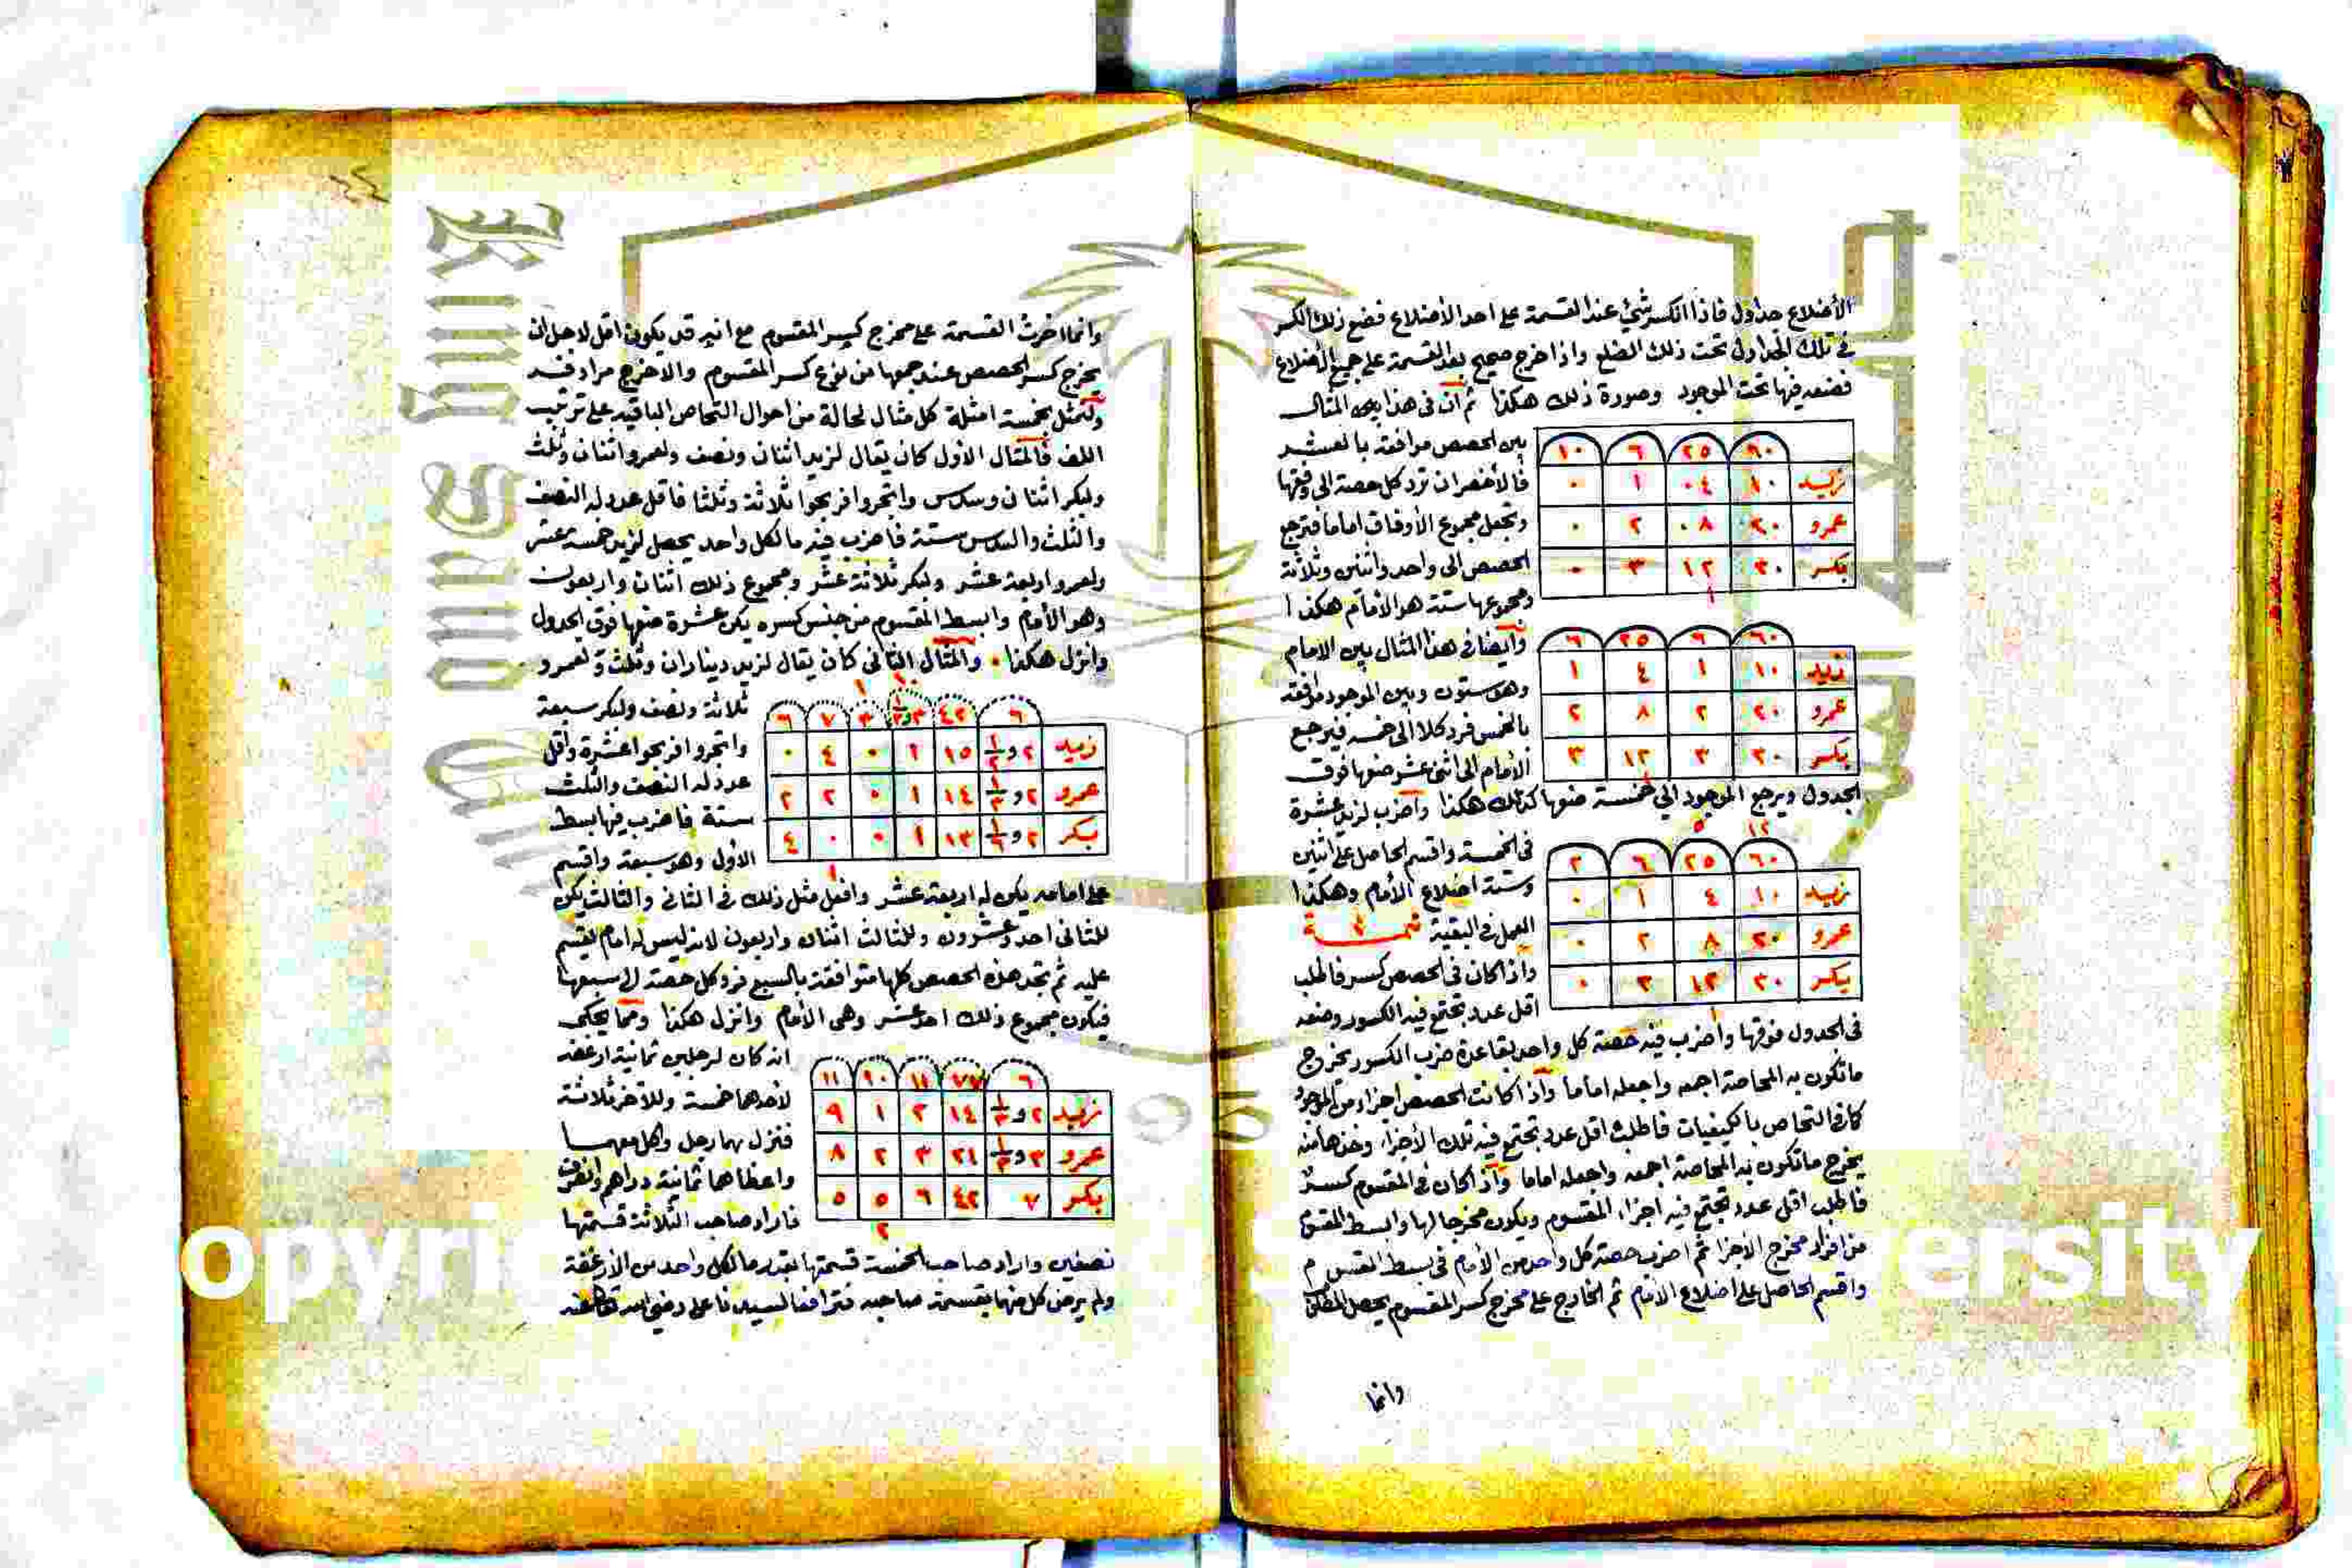 الأضلاع جداول فاذا انكسر شئ عند القسمة على احد الأضلاع فضع ذلك الكسر
في تلك الجداول تحت ذلك الضلع واذا خرج صحيح بعد القسمة على جميع الأضلاع
فضعه فيها تحت الموجود وصورة ذلك هكذا ثم ان في هذا المثال
بين الحصص موافقة بالعشر
فالأخصر ان ترد كل حصة الى وفقها
وتجعل مجموع الأوفاق اماما فترجع
الحصص الى واحد واثنين وثلاثة
ومجموعها ستة هو الأمام هكذا
٦٠ ٢٥ ٦ ١٠
زيد ١٠ ٠٤ ١ ٠
عمرو ٢٠ ٠٨ ٢ ٠
بكر ٣٠ ١٢ ٣ ٠
١
وأيضا في هذا المثال بين الامام
وهو ستون وبين الموجود موافقة
بالخمس فرد كلا الى خمسه فيرجع
الأمام الى اثنى عشر ضعها فوق
٦٠ ٦ ٢٥ ٦
زيد ١٠ ١ ٤ ١
عمرو ٢٠ ٢ ٨ ٢
بكر ٣٠ ٣ ١٢ ٣
الجدول ويرجع الموجود الى خمسة ضعها كذلك هكذا واضرب لزيد عشرة
في الخمسة واقسم الحاصل على اثنين
وستة اضلاع الأمام وهكذا
العمل في البقية تتمة
واذا كان في الحصص كسر فاطلب
اقل عدد تجتمع فيه الكسور وضعه
١٢ ٥
٦٠ ٢٥ ٦ ٢
زيد ١٠ ٤ ١ ٠
عمرو ٢٠ ٨ ٢ ٠
بكر ٣٠ ١٢ ٣ ٠
١
في الجدول فوقها واضرب فيه حصة كل واحد بقاعدة ضرب الكسور يخرج
ماتكون به المحاصة اجمعه واجعله اماما واذا كانت الحصص اجزاء من الموجود
كما في التحاص بالكيفيات فاطلب اقل عدد تجتمع فيه تلك الأجزاء وخذها منه
يخرج ماتكون به المحاصة اجمعه واجعله اماما واذا كان في المقسوم كسر
فاطلب اقل عدد تجتمع فيه اجزاء المقسوم ويكون مخرجا لها وابسط المقسوم
من افراد مخرج الأجزا ثم اضرب حصة كل واحد من الأمام في بسط المقسوم
واقسم الحاصل على اضلاع الامام ثم الخارج على مخرج كسر المقسوم يحصل المطلوب
وانما
وانما اخرت القسمة على مخرج كسر المقسوم مع انه قد يكون اقل لاجل ان
يخرج كسر الحصص عند جمعها من نوع كسر المقسوم والاخرج مرادفه
ولنمثل بخمسة امثلة كل مثال لحالة من احوال التحاص الباقية على ترتيب
اللف فالمثال الأول كان يقال لزيد اثنان ونصف ولعمرو اثنان وثلث
ولبكر اثنان وسدس واتجروا فربحوا ثلاثة وثلثا فاقل عدد له النصف
والثلث والسدس ستة فاضرب فيه ما لكل واحد يحصل لزيد خمسة عشر
ولعمرو اربعة عشر ولبكر ثلاثة عشر ومجموع ذلك اثنان واربعون
وهو الأمام وابسط المقسوم من جنس كسره يكن عشرة ضعها فوق الجدول
وانزل هكذا والمثال الثاني كان يقال لزيد ديناران وثلث ولعمرو
ثلاثة ونصف ولبكر سبعة
واتجروا فربحوا عشرة واقل
عدد له النصف والثلث
ستة فاضرب فيها بسط
الأول وهو سبعة واقسم
١٠ ١
٦ ٤٢ ٣ و ١/٣ ٣ ٧ ٦
زيد ٢ و ١/٢ ١٥ ١ ٠ ٤ ٠
عمرو ٢ و ١/٣ ١٤ ١ ٠ ٢ ٢
بكر ٢ و ١/٦ ١٣ ١ ٠ ٠ ٤
١
على امامه يكن له اربعة عشر وافعل مثل ذلك في الثاني والثالث يكن
للثاني احد وعشرون وللثالث اثنان واربعون لانه ليس له امام يقسم
عليه ثم تجد هذه الحصص كلها متوافقة بالسبع فرد كل حصة الى سبعها
فيكون مجموع ذلك احد عشر وهى الأمام وانزل هكذا ومما يحكى
انه كان لرجلين ثمانية ارغفة
لأحدهما خمسة وللآخر ثلاثة
فنزل بهما رجل واكل معهما
واعطاهما ثمانية دراهم وانصرف
فاراد صاحب الثلاثة قسمتها
٦ ٧٧ ١١ ١٠ ١١
زيد ٢ و ١/٣ ١٤ ٢ ١ ٩
عمرو ٣ و ١/٢ ٢١ ٣ ٢ ٨
بكر ٧ ٤٢ ٦ ٥ ٥
٢
نصفين واراد صاحب الخمسة قسمتها بقدر ما لكل واحد من الأرغفة
ولم يرض كل منهما بقسمة صاحبه فترافعا لسيدنا على رضي الله تعالى عنه
King Saud
opyri ersity